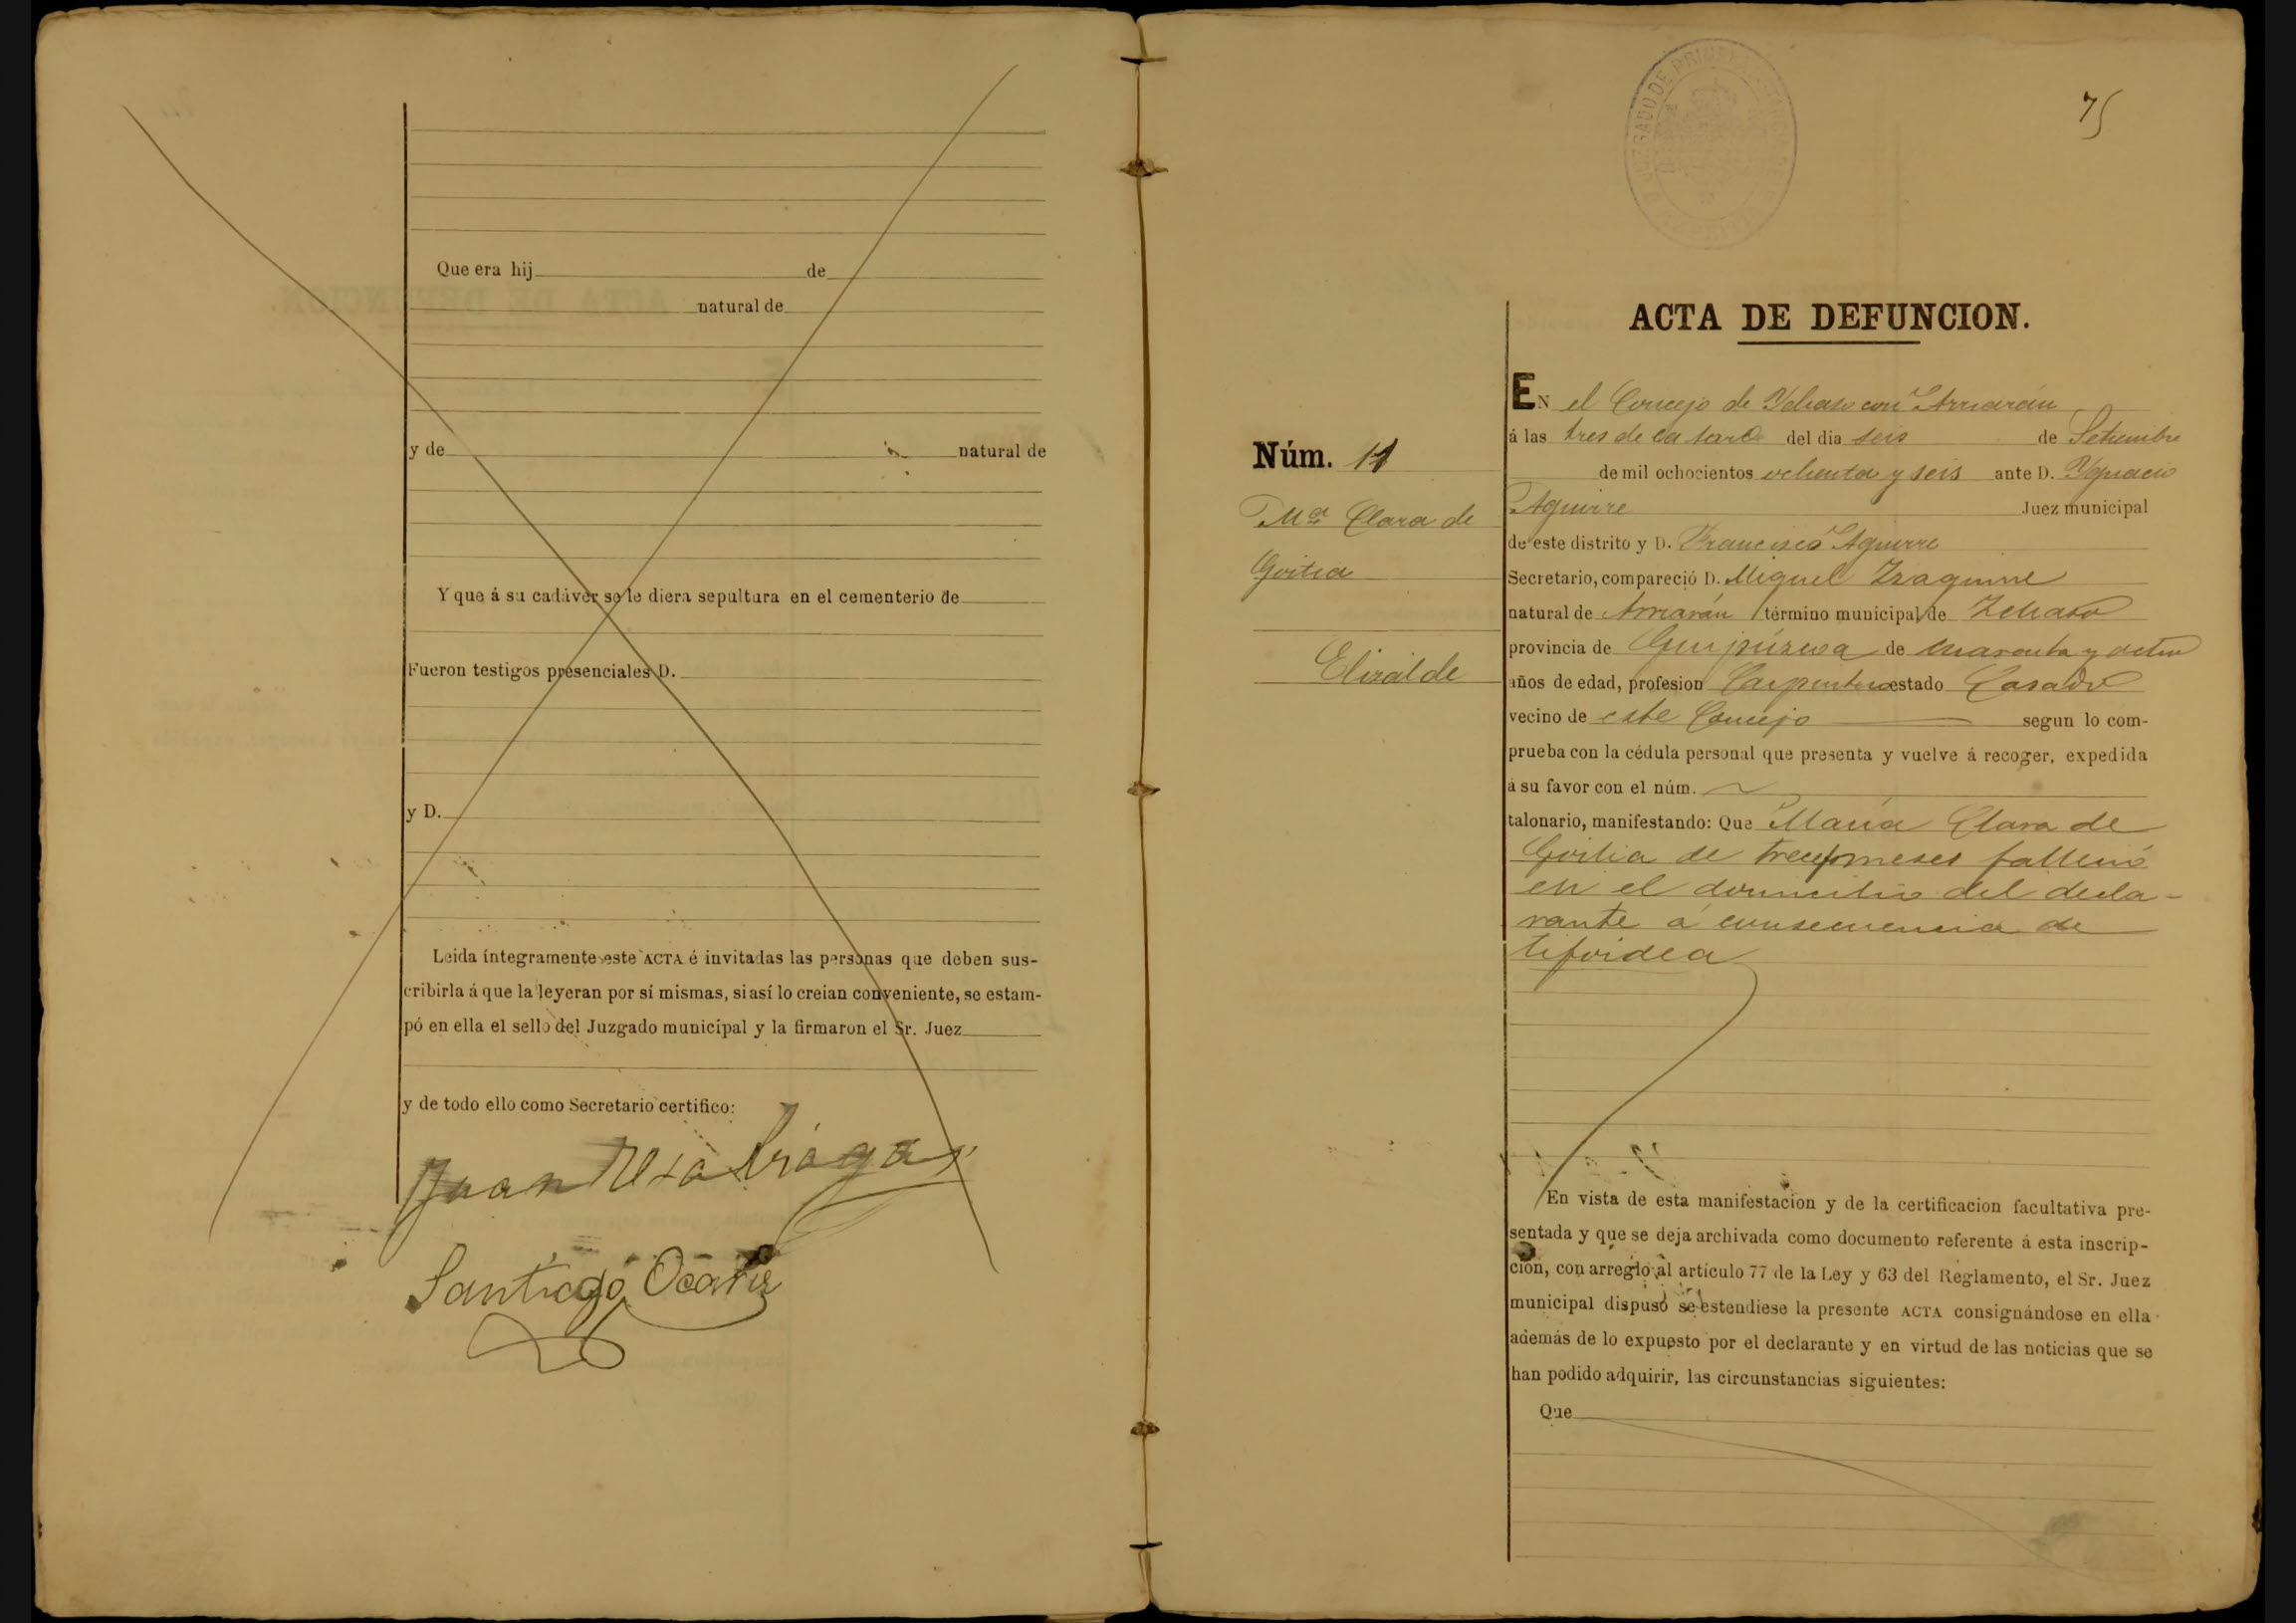 Que era hij de
natural de
y de natural de
Y que á su cadáver se le diera sepultura en el cementerio de
Fueron testigos presenciales D.
y D.
Leida íntegramente este ACTA é invitadas las personas que deben sus-
cribirla á que la leyeran por sí mismas, si así lo creian conveniente, se estam-
pó en ella el sello del Juzgado municipal y la firmaron el Sr. Juez
y de todo ello como Secretario certifico:
Juan
Santiago Ocariz
75
ACTA DE DEFUNCION.
Núm. 11
Mª Clara de
Goitia
Elizalde
EN el Concejo de Ychaso con Arriarán
á las tres de la tarde del dia seis de Setiembre
de mil ochocientos ochenta y seis ante D. Ygnacio
Aguirre Juez municipal
de este distrito y D. Francisco Aguirre
Secretario, compareció D. Miguel Izaguirre
natural de Arriarán término municipal de Ichaso
provincia de Guipúzcoa de cuarenta y ocho
años de edad, profesion Carpintero estado Casado
vecino de este Concejo segun lo com-
prueba con la cédula personal que presenta y vuelve á recoger, expedida
á su favor con el núm.
talonario, manifestando: Que María Clara de
Goitia de meses falleció
en el domicilio del decla-
rante á consecuencia de
tifoidea
En vista de esta manifestacion y de la certificacion facultativa pre-
sentada y que se deja archivada como documento referente á esta inscrip-
cion, con arreglo al artículo 77 de la Ley y 63 del Reglamento, el Sr. Juez
municipal dispuso se estendiese la presente ACTA consignándose en ella
además de lo expuesto por el declarante y en virtud de las noticias que se
han podido adquirir, las circunstancias siguientes:
Que